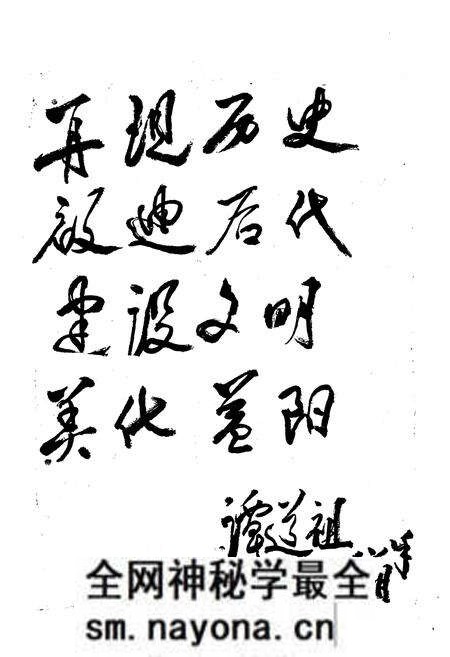 再现历史
启迪后代
建设文明
美化益阳
谭道祖
全网神秘学最全
sm.nayona.cn